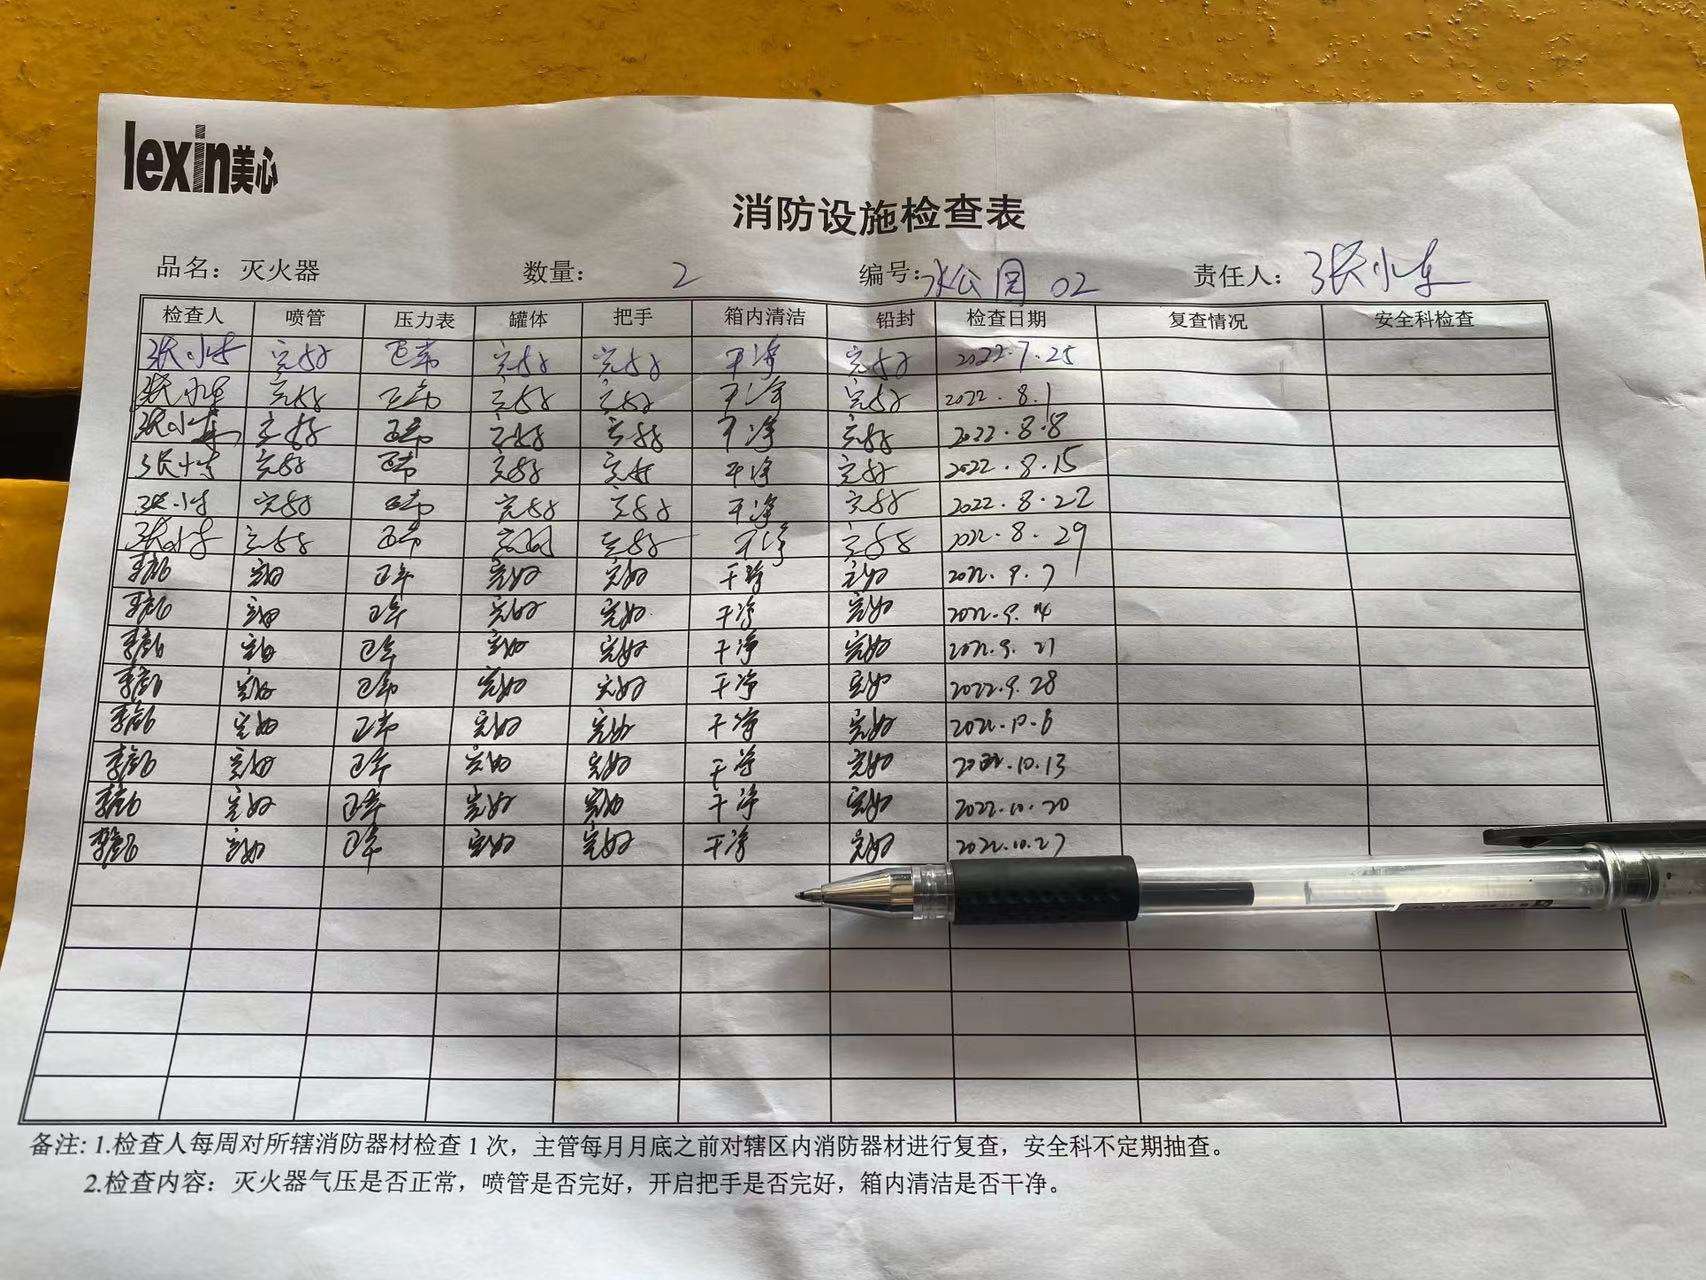 lexin美心
消防设施检查表
品名：灭火器 数量：2 编号：水公园 02 责任人：张小东
检查人 喷管 压力表 罐体 把手 箱内清洁 铅封 检查日期 复查情况 安全科检查
张小东 完好 正常 完好 完好 干净 完好 2022.7.25
张小东 完好 正常 完好 完好 干净 完好 2022.8.1
张小东 完好 正常 完好 完好 干净 完好 2022.8.8
张小东 完好 正常 完好 完好 干净 完好 2022.8.15
张小东 完好 正常 完好 完好 干净 完好 2022.8.22
张小东 完好 正常 完好 完好 干净 完好 2022.8.29
完好 正常 完好 完好 干净 完好 2022.9.7
完好 正常 完好 完好 干净 完好 2022.9.14
完好 正常 完好 完好 干净 完好 2022.9.21
完好 正常 完好 完好 干净 完好 2022.9.28
完好 正常 完好 完好 干净 完好 2022.10.6
完好 正常 完好 完好 干净 完好 2022.10.13
完好 正常 完好 完好 干净 完好 2022.10.20
完好 正常 完好 完好 干净 完好 2022.10.27
备注: 1.检查人每周对所辖消防器材检查 1 次，主管每月月底之前对辖区内消防器材进行复查，安全科不定期抽查。
2.检查内容：灭火器气压是否正常，喷管是否完好，开启把手是否完好，箱内清洁是否干净。